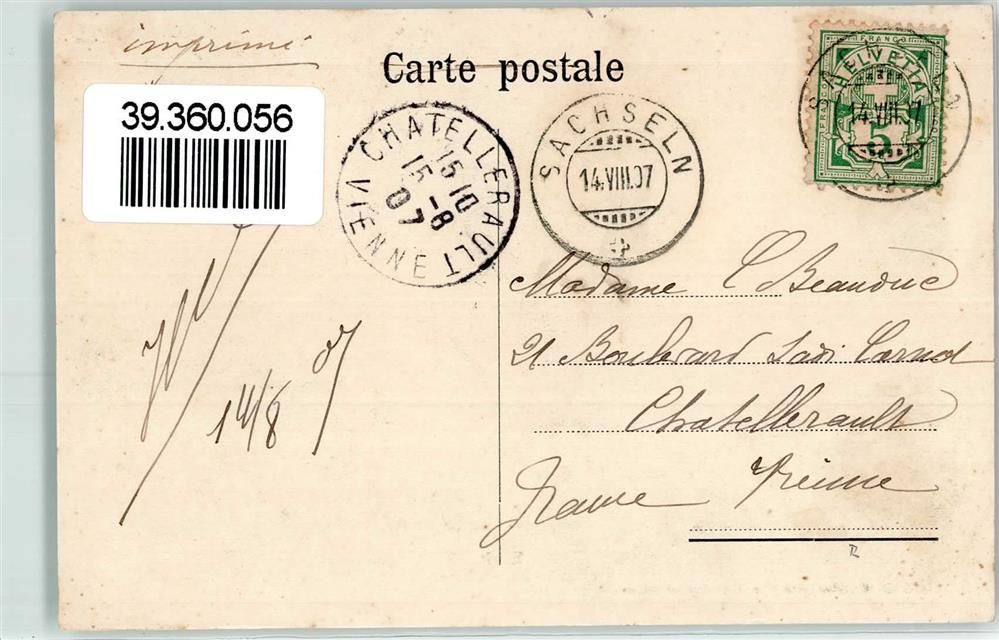 imprimé
Carte postale
39.360.056
CHATELLERAULT
15·10
15-8
07
VIENNE
SACHSELN
14.VIII.07
SACHSELN
14.VIII.07
FRANCO
HELVETIA
5
Madame C Beauduc
21 Boulevard Sadi Carnot
Chatellerault
France Vienne
14/8 07